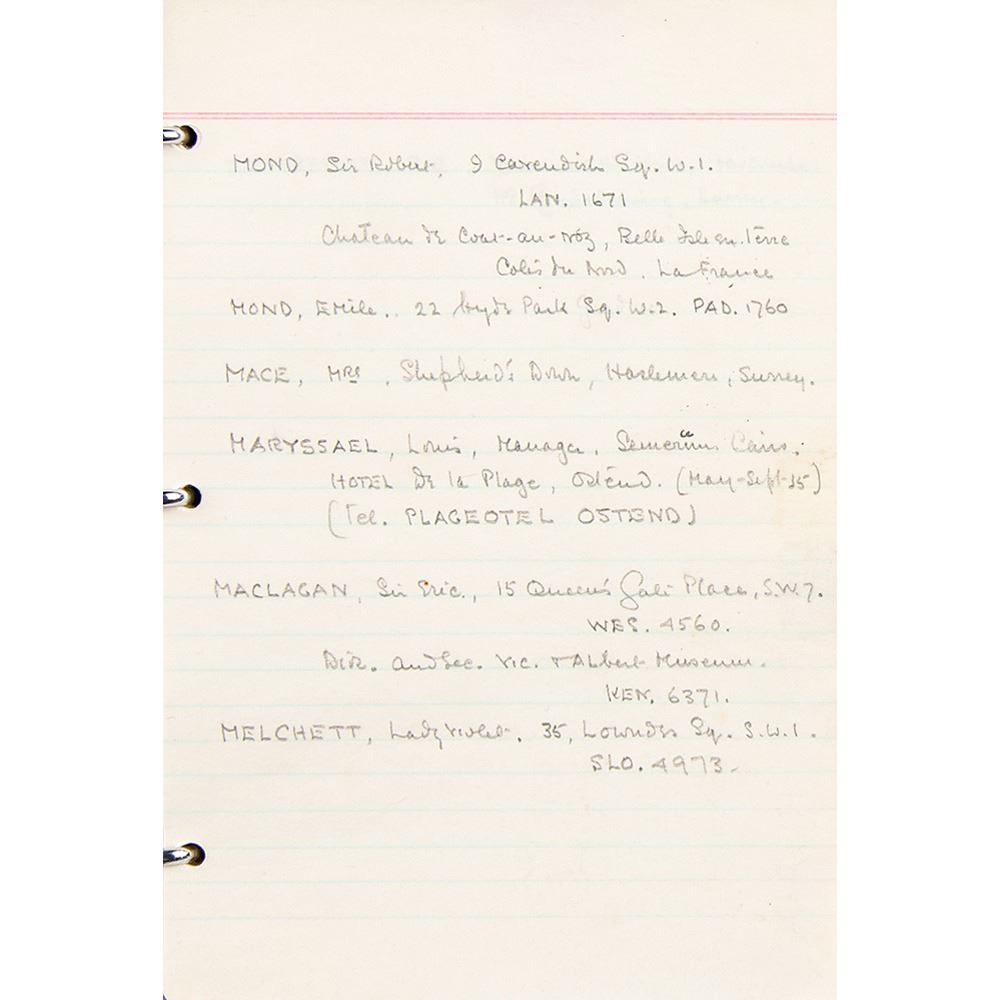 MOND, Sir Robert, 9 Cavendish Sq. W.1.
LAN. 1671
Chateau de Coat-an-Noz, Belle Isle en. Terre
Cotes du Nord. La France
MOND, Emile.. 22 Hyde Park Sq. W.2. PAD. 1760
MACE, Mrs, Shepherd's Down, Haslemere, Surrey.
MARYSSAEL, Louis, Manager, Cairo.
HOTEL de la Plage, Ostend. (May-Sept-35)
(Tel. PLAGEOTEL OSTEND)
MACLAGAN, Sir Eric, 15 Queen's Gate Place, S.W.7.
WES. 4560.
Dir. and Sec. Vic. & Albert Museum.
KEN. 6371.
MELCHETT, Lady Violet. 35, Lowndes Sq. S.W.1.
SLO. 4973-